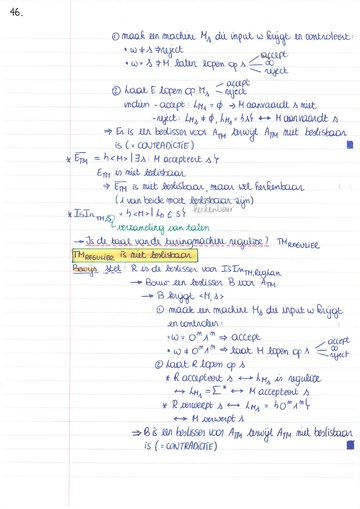 46.
① maak een machine Ms die input w krijgt en controleert:
• w ≠ s → reject
• w = s → M laten lopen op s < accept ∞ reject
② Laat E lopen op Ms < accept reject
indien - accept: LMs = ∅ → M aanvaardt s niet
- reject: LMs ≠ ∅, LMs = {s} ↔ M aanvaardt s
⇒ Er is een beslisser voor ATM terwijl ATM niet beslisbaar
is (= CONTRADICTIE)
* ETM = {<M> | ∃s: M accepteert s}
ETM is niet beslisbaar
⇒ ETM is niet beslisbaar, maar wel herkenbaar
(1 van beide moet beslisbaar zijn)
* IsIn TM,S = {<M> | LM ∈ S} herkenbaar
verzameling van talen
→ Is de taal van de turingmachine regulier? TM REGULIER
TM REGULIER is niet beslisbaar
Bewijs stel: R is de beslisser voor IsIn TM,Reglan
→ Bouw een beslisser B voor ATM
→ B krijgt <M,s>
① maak een machine Ms die input w krijgt
en controleert:
• w = 0ⁿ1ⁿ ⇒ accept
• w ≠ 0ⁿ1ⁿ ⇒ laat M lopen op s < accept ∞ reject
② Laat R lopen op s
* R accepteert s ↔ LMs is regulier
↔ LMs = Σ* ↔ M accepteert s
* R verwerpt s ↔ LMs = {0ⁿ1ⁿ}
↔ M verwerpt s
⇒ B is een beslisser voor ATM terwijl ATM niet beslisbaar
is (= CONTRADICTIE)